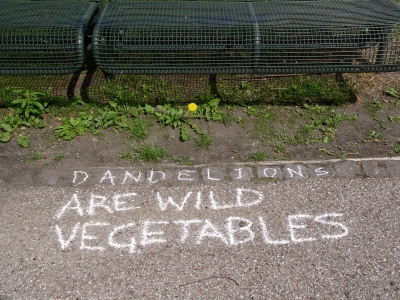 DANDELIONS
ARE WILD
VEGETABLES